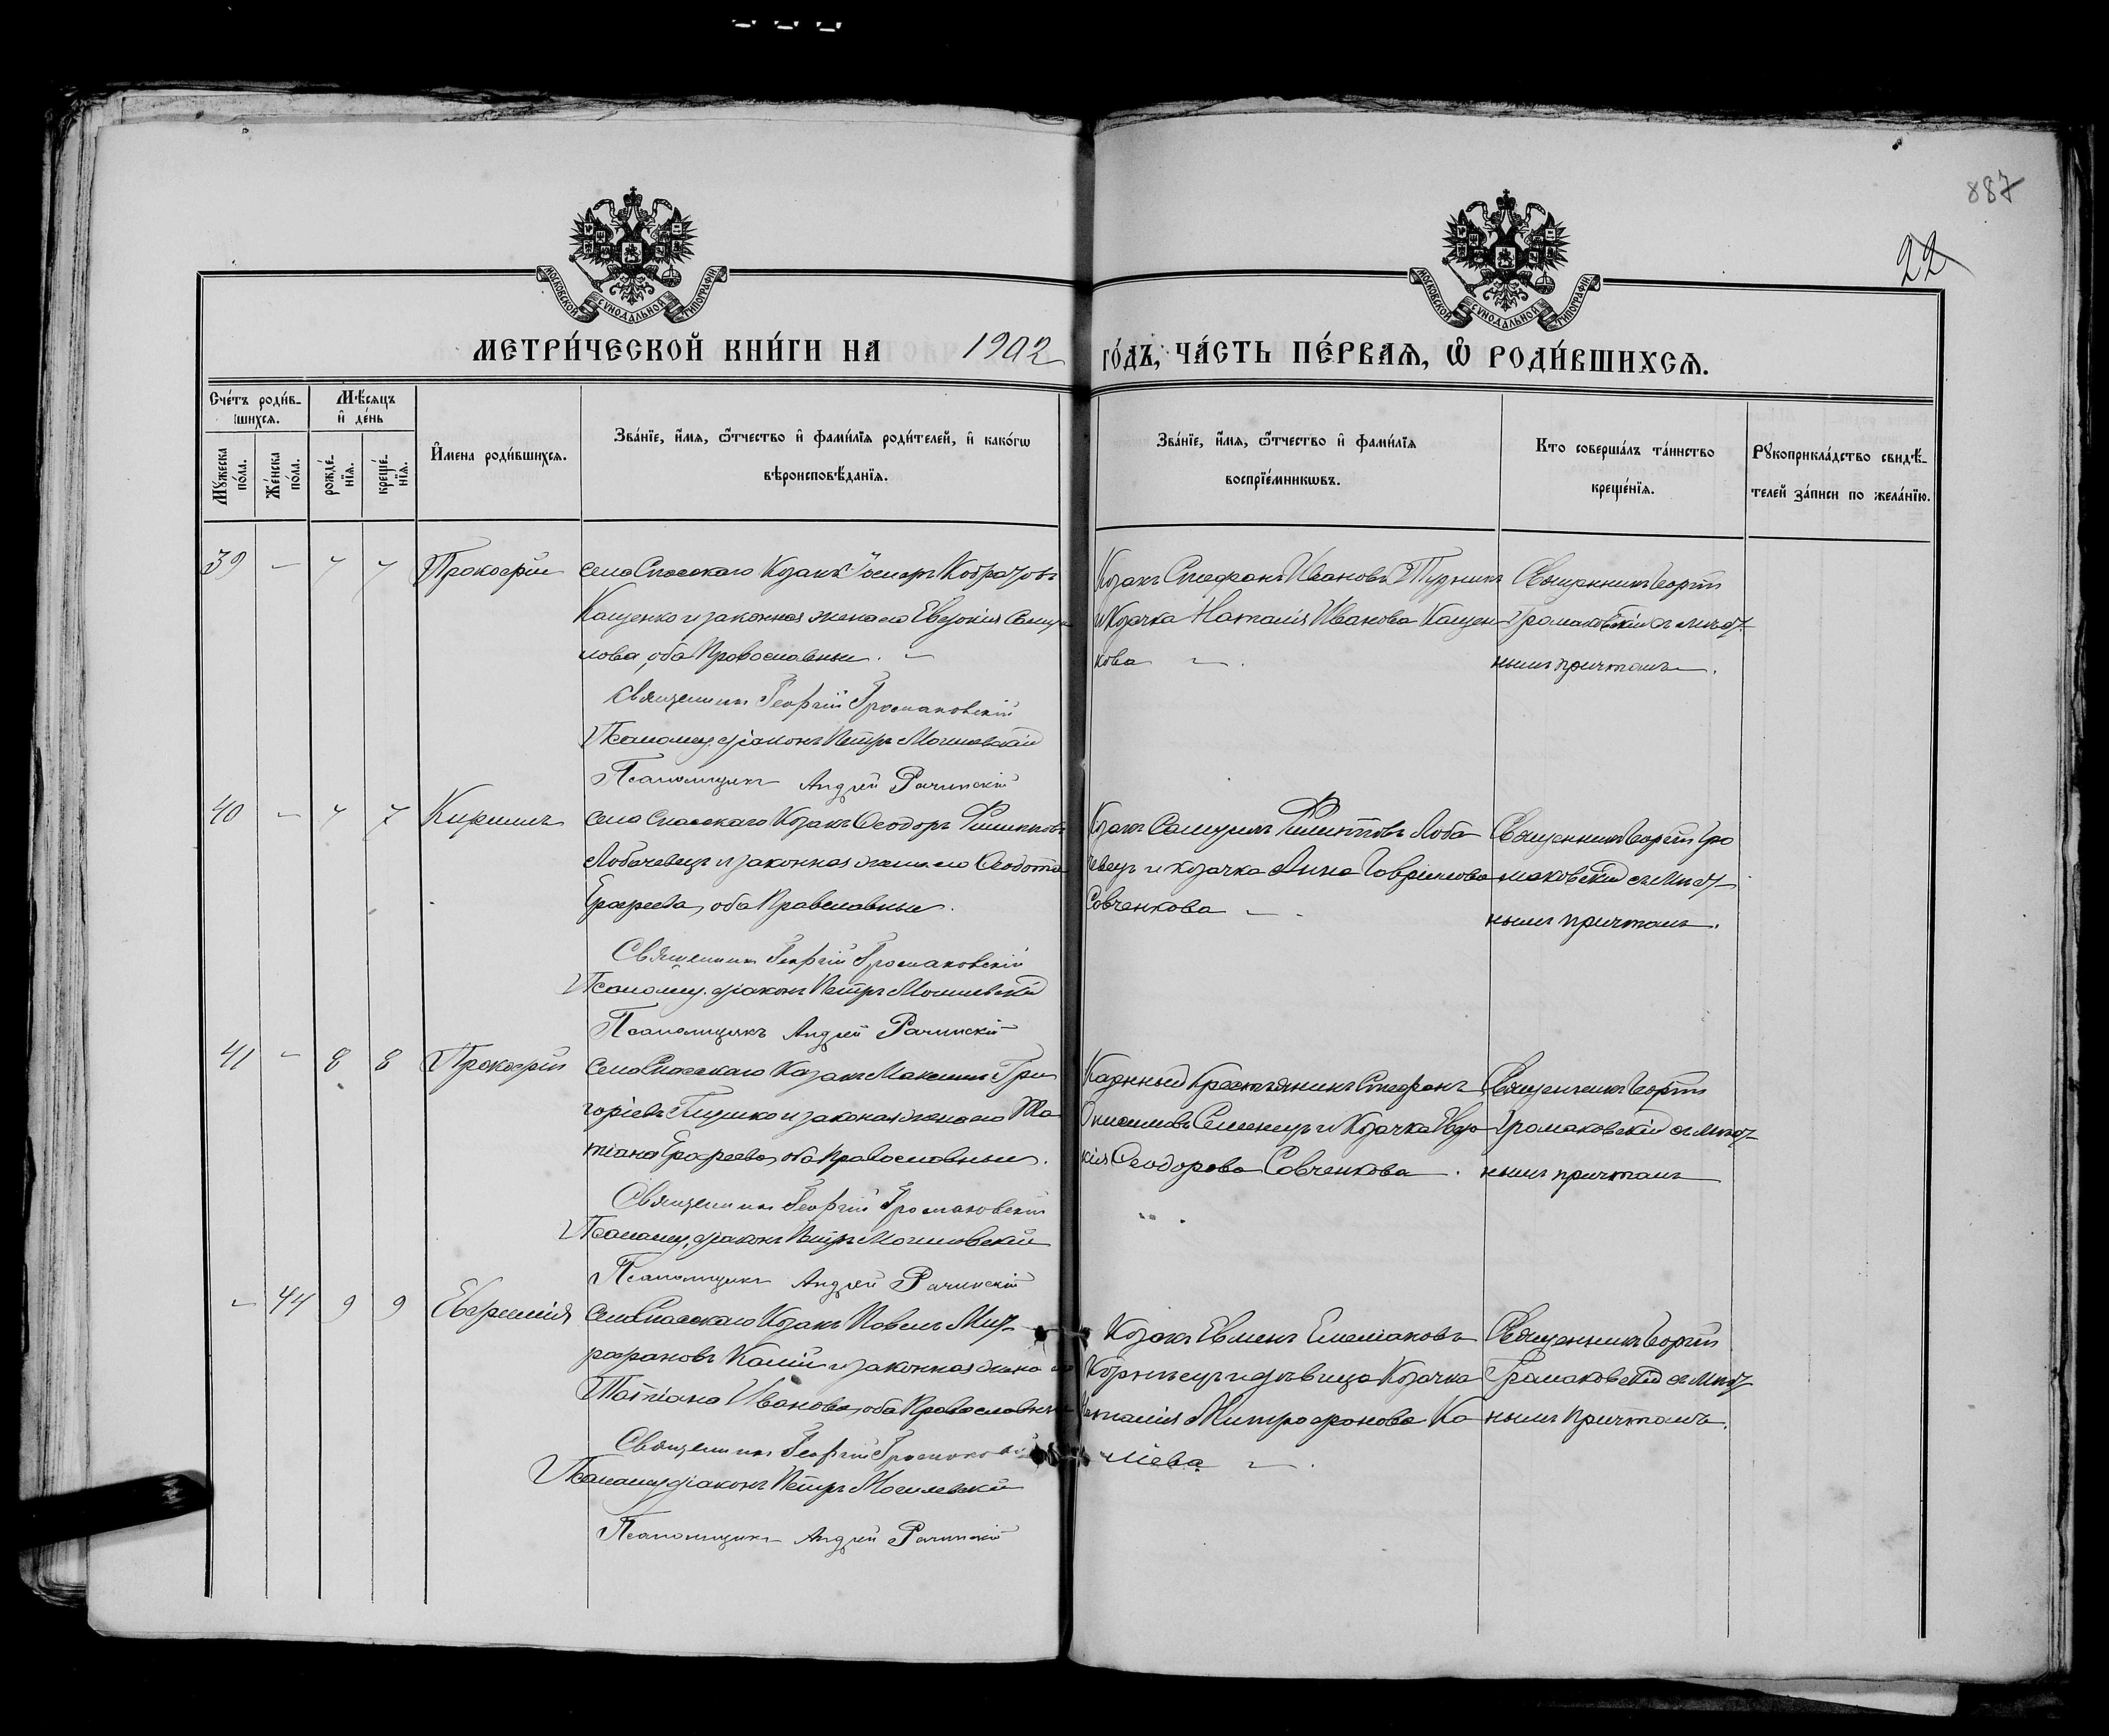 887
22
МОСКОВСКОЙ СѴНОДАЛЬНОЙ ТИПОГРАФІИ
МОСКОВСКОЙ СѴНОДАЛЬНОЙ ТИПОГРАФІИ
МЕТРИ́ЧЕСКОЙ КНИ́ГИ НА 1902 ГО́ДЪ, ЧА́СТЬ ПЕ́РВАЯ, Ѡ РОДИ́ВШИХСЯ.
Сче́тъ роди́в-
шихся.
Мꙋжеска по́ла.
Же́нска по́ла.
Мѣ́сяцъ
и҆ де́нь
рожде́-
нїя.
креще́-
нїя.
И҆мена роди́вшихся.
Зва́нїе, и҆́мя, ѻ҆́тчество и҆ фами́лїя роди́телей, и҆ како́гѡ
вѣроисповѣ́данїя.
Зва́нїе, и҆́мя, ѻ҆́тчество и҆ фами́лїя
воспрїе́мникѡвъ.
Кто соверша́лъ та́инство
креще́нїя.
Рꙋкоприкла́дство свидѣ́-
телей за́писи по жела́нїю.
39 – 7 7 Прокофій
села Спасскаго Козакъ Іосифъ Кодратовъ
Кащенко и законная жена его Евдокія Самуи
лова, оба Православные.
Священникъ Георгій Громаковскій
Псаломщ. діаконъ Петръ Могилевскій
Псаломщикъ Андрей Рачинскій
Козакъ Стефанъ Ивановъ
и Козачка Наталія Иванова Кащен
кова
Священникъ Георгій
Громаковскій съ мѣст-
нымъ причтомъ.
40 – 7 7 Кириллъ
села Спасскаго Козакъ Ѳеодоръ Филипповъ
Лобачевецъ и законная жена его Ѳеодотія
Ерофеева, оба Православные.
Священникъ Георгій Громаковскій
Псаломщ. діаконъ Петръ Могилевскій
Псаломщикъ Андрей Рачинскій
Козакъ Самуилъ Филипповъ Лоба
чевецъ и козачка Анна Гавриилова
Савченкова
Священникъ Георгій Гро
маковскій съ мѣст-
нымъ причтомъ.
41 – 8 8 Прокофій
села Спасскаго Козакъ Максимъ Гри
горіевъ и законная жена его Та
тіана Ерофеева, оба Православные.
Священникъ Георгій Громаковскій
Псаломщ. діаконъ Петръ Могилевскій
Псаломщикъ Андрей Рачинскій
Казенный Крестьянинъ Стефанъ
Онисимовъ Семенецъ и Козачка Евдо
кія Ѳеодорова Савченкова.
Священникъ Георгій
Громаковскій съ мѣст-
нымъ причтомъ
– 44 9 9 Евфимія
села Спасскаго Козакъ Павелъ Мит-
рофановъ Калій и законная жена его
Татіана Иванова, оба Православные
Священникъ Георгій Громаковскій
Псаломщ. діаконъ Петръ Могилевскій
Псаломщикъ Андрей Рачинскій
Козакъ Евменъ Емеліановъ
Корнѣецъ и дѣвица Козачка
Наталія Митрофанова Ка
ліева
Священникъ Георгій
Громаковскій съ мѣст
нымъ причтомъ.